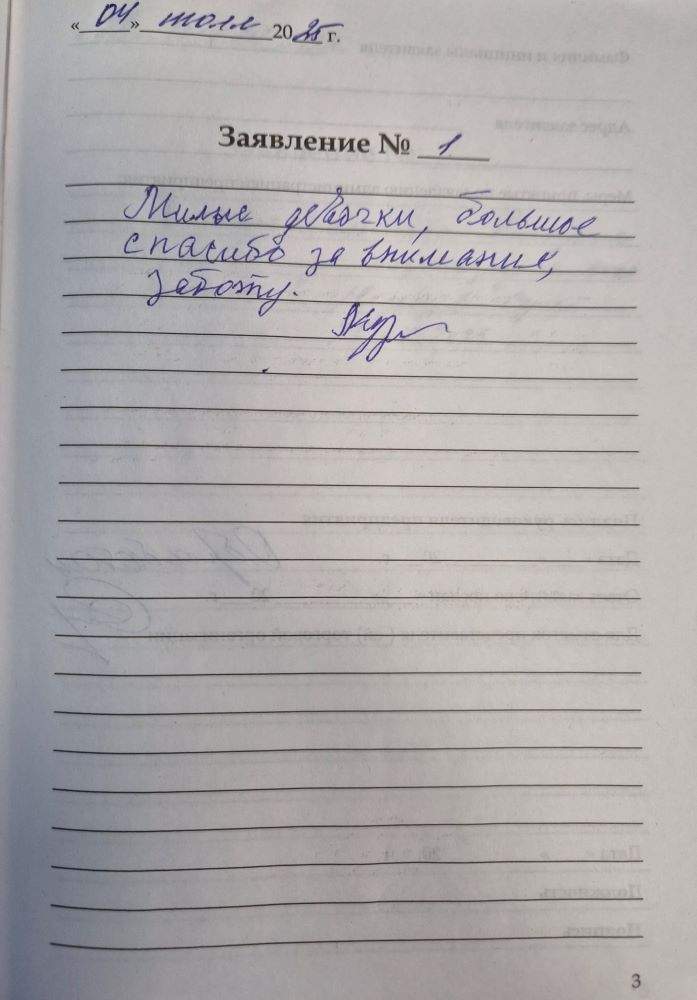 « 04 » июля 2025 г.
Заявление № 1
Милые девочки, большое
спасибо за внимание,
заботу.
3